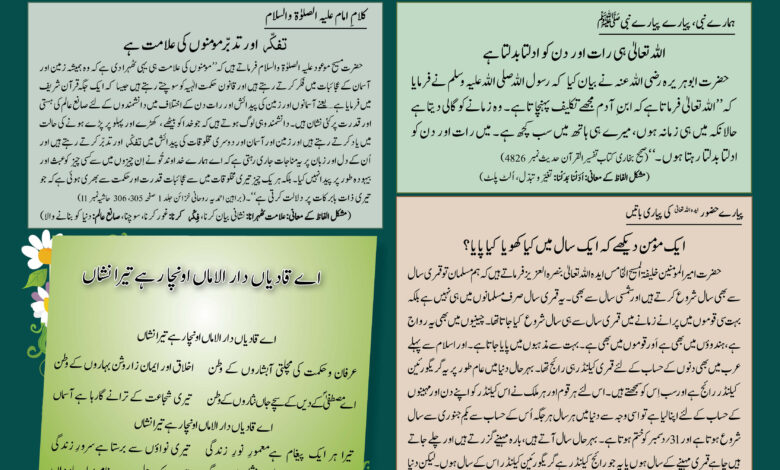 ہمارے نبی، پیارے پیارے نبی ﷺ
اللہ تعالیٰ ہی رات اور دن کو ادلتا بدلتا ہے
حضرت ابوہریرہ رضی اللہ عنہ نے بیان کیا کہ رسول اللہ صلی اللہ علیہ وسلم نے فرمایا
کہ ’’اللہ تعالیٰ فرماتا ہے کہ ابن آدم مجھے تکلیف پہنچاتا ہے۔ وہ زمانے کو گالی دیتا ہے
حالانکہ میں ہی زمانہ ہوں، میرے ہی ہاتھ میں سب کچھ ہے۔ میں رات اور دن کو
ادلتا بدلتا رہتا ہوں۔‘‘ (صحیح بخاری کتاب تفسیر القرآن حدیث نمبر 4826)
(مشکل الفاظ کے معانی: اَدَلنا بَدَلنا: تغیّر و تبدّل، اُلٹ پلٹ)
کلامِ امام علیہ الصلوٰۃ والسلام
تفکّر اور تدبّر مومنوں کی علامت ہے
حضرت مسیح موعود علیہ الصلوٰۃ والسلام فرماتے ہیں کہ ’’مومنوں کی علامت ہی یہی ٹھہرا دی ہے کہ وہ ہمیشہ زمین اور
آسمان کے عجائبات میں فکر کرتے رہتے ہیں اور قانون حکمت الٰہیہ کو سوچتے رہتے ہیں جیسا کہ ایک جگہ قرآن شریف
میں فرمایا ہے۔ یعنے آسمانوں اور زمین کی پیدائش اور رات دن کے اختلاف میں دانشمندوں کے لئے صانع عالم کی ہستی
اور قدرت پر کئی نشان ہیں۔ دانشمند وہی لوگ ہوتے ہیں کہ جو خدا کو بیٹھے، کھڑے اور پہلو پر پڑے ہونے کی حالت
میں یاد کرتے رہتے ہیں اور زمین اور آسمان اور دوسری مخلوقات کی پیدائش میں تفکر کرتے رہتے ہیں اور
اُن کے دل اور زبان پر یہ مناجات جاری رہتی ہے کہ اے ہمارے خداوند تُو نے ان چیزوں میں سے کسی چیز کو عبث اور
بیہودہ طور پر پیدا نہیں کیا۔ بلکہ ہر یک چیز تیری مخلوقات میں سے عجائبات قدرت اور حکمت سے بھری ہوئی ہے کہ جو
تیری ذات بابرکات پر دلالت کرتی ہے‘‘۔ (براہین احمدیہ، روحانی خزائن جلد 1 صفحہ 305، 306 حاشیہ نمبر 11)
(مشکل الفاظ کے معانی: علامت ٹھہرانا: نشانی بیان کرنا، فِکر کرنا: غور کرنا، سوچنا، صانعِ عالم: دنیا کو بنانے والا)
پیارے حضور ایدہ اللہ تعالیٰ کی پیاری باتیں
ایک مؤمن دیکھے کہ ایک سال میں کیا کھویا کیا پایا؟
حضرت امیرالمومنین خلیفۃ المسیح الخامس ایدہ اللہ تعالیٰ بنصرہ العزیز فرماتے ہیں کہ ہم مسلمان تو قمری سال
سے بھی سال شروع کرتے ہیں اور شمسی سال سے بھی۔ یہ قمری سال صرف مسلمانوں میں ہی نہیں ہے بلکہ
بہت سی قوموں میں پرانے زمانے میں قمری سال سے ہی سال شروع کیا جاتا تھا۔ چینیوں میں بھی یہ رواج
ہے، ہندوؤں میں بھی ہے اور قوموں میں بھی ہے۔ بہت سے مذہبوں میں پایا جاتا ہے۔ اور اسلام سے پہلے
عرب میں بھی دنوں کے حساب کے لئے قمری کیلنڈر ہی رائج تھا۔ بہرحال دنیا میں عام طور پر یہ گریگورئین
کیلنڈر رائج ہے اور سب اس کو سمجھتے ہیں۔ اس لئے ہر قوم اور ہر ملک نے اس کیلنڈر کو اپنے دن اور مہینوں
کے حساب کے لئے اپنا لیا ہے تو اسی وجہ سے دنیا میں ہر سال ہر جگہ اُس کے حساب سے یکم جنوری سے سال
شروع ہوتا ہے اور 31؍دسمبر کو ختم ہوتا ہے۔ بہرحال سال آتے ہیں، بارہ مہینے گزرتے ہیں اور چلے جاتے
ہیں چاہے قمری مہینے کے سال ہوں یا یہ جو رائج کیلنڈر ہے گریگورئین کیلنڈر اس کے سال ہوں۔ لیکن دنیا
اے قادیاں دار الاماں اونچا رہے تیرا نشاں
اے قادیاں دار الاماں اونچا رہے تیرا نشاں
عرفان و حکمت کی مچلتی آبشاروں کے وطن اخلاق اور ایمان زا روشن بہاروں کے وطن
اے مصطفیٰؐ کے دیں کے سچے جاں نثاروں کے وطن تیری شجاعت کے ترانے گا رہا ہے آسماں
اے قادیاں دار الاماں اونچا رہے تیرا نشاں
تیرا ہر ایک پیغام ہے معمورِ نورِ زندگی تیری نواؤں سے برستا ہے سرورِ زندگی